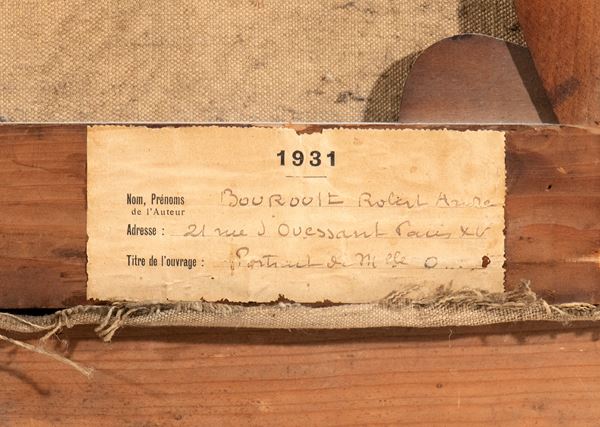 1931
Nom, Prénoms BOUROULT Robert André
de l'Auteur
Adresse : 21 rue d'Ouessant Paris XV
Titre de l'ouvrage : Portrait de Mlle O